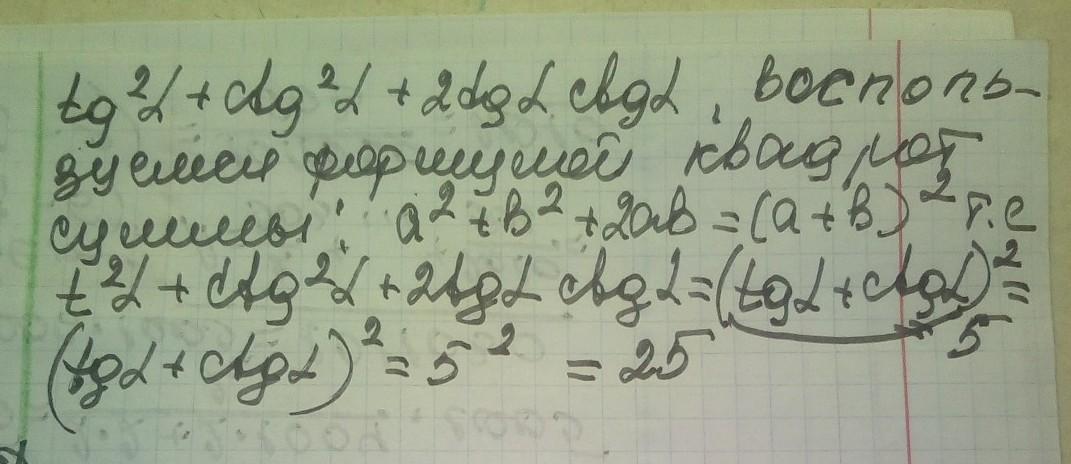 tg²α + ctg²α + 2tgα ctgα, восполь-
зуемся формулой квадрат
суммы: a² + b² + 2ab = (a + b)² т.е
t²α + ctg²α + 2tgα ctgα = (tgα + ctgα)² =
5
(tgα + ctgα)² = 5² = 25